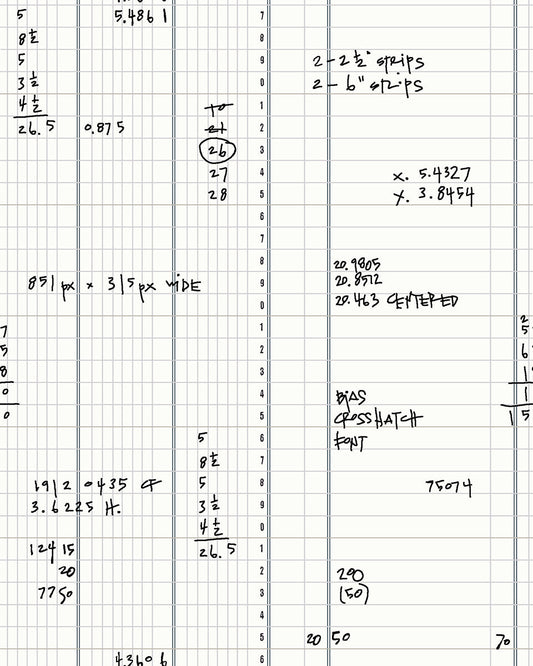 5
5.4861
7
8½
8
5
9
2 - 2½" STRIPS
3½
0
2 - 6" STRIPS
4½
1
26.5 0.875
21
2
26
3
27
4
X. 5.4327
28
5
Y. 3.8454
6
7
8
20.9805
851 px x 315 px WIDE
9
20.8512
0
20.463 CENTERED
7
1
5
5
2
6
8
3
1
0
4
BIAS
1
0
5
CROSSHATCH
15
5
6
FONT
8½
7
1912 0435 CF
5
8
75074
3.6225 H.
3½
9
4½
0
12415
26.5
1
20
2
200
7750
3
(50)
4
5
20 50
70
4.3606
6